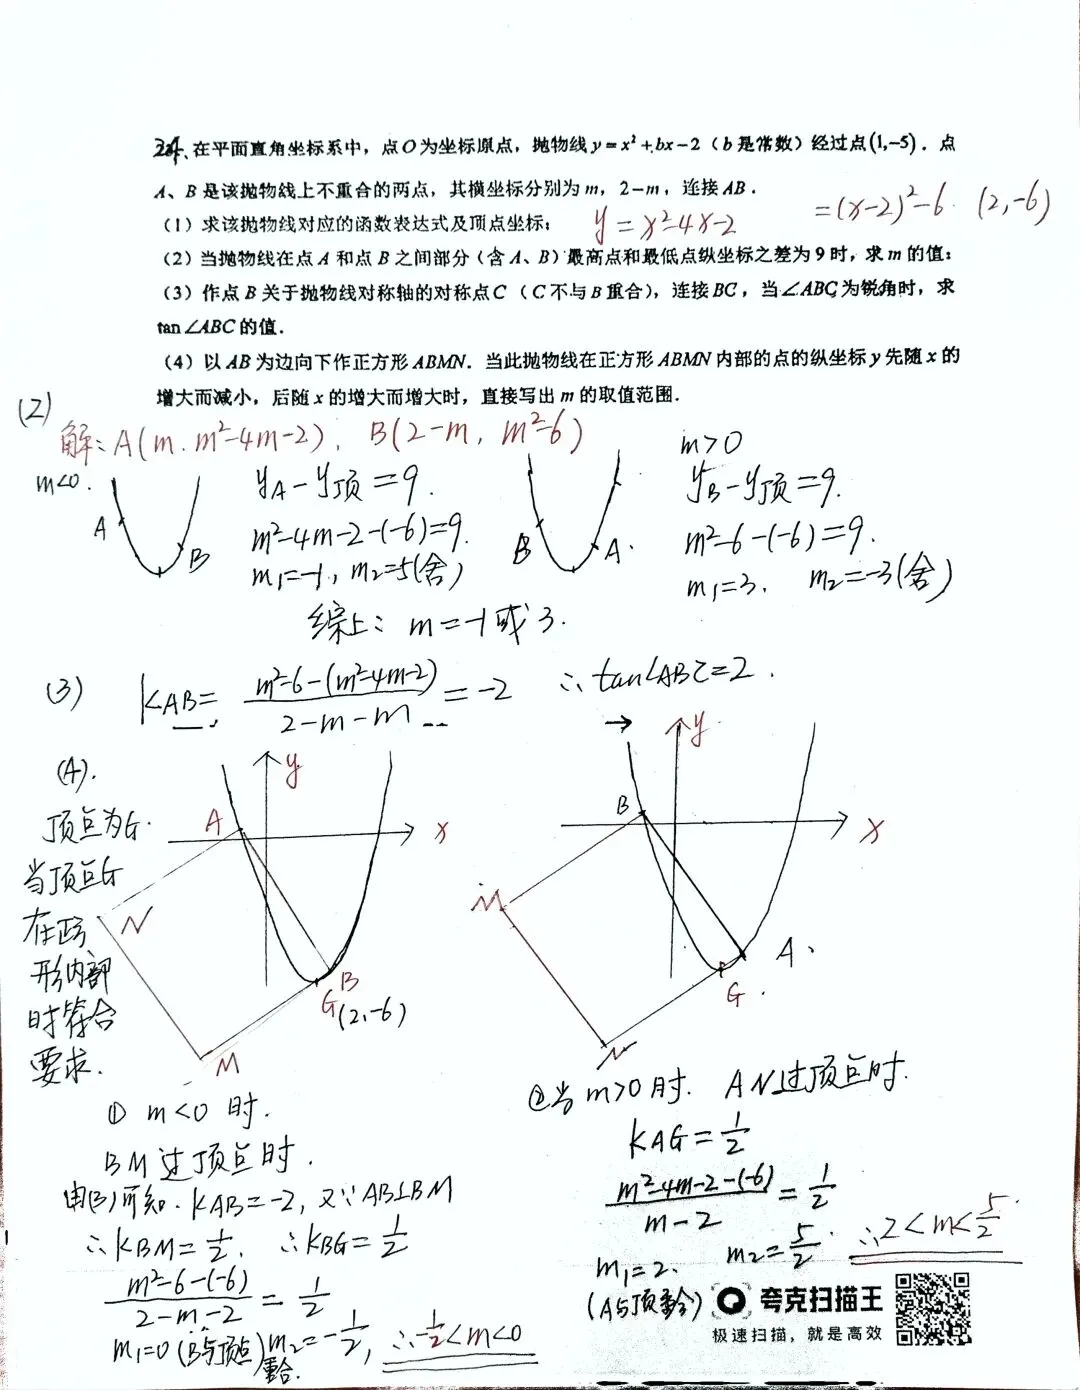 24、在平面直角坐标系中，点O为坐标原点，抛物线y=x²+bx-2（b是常数）经过点(1,-5)．点
A、B是该抛物线上不重合的两点，其横坐标分别为m，2-m，连接AB．
(1) 求该抛物线对应的函数表达式及顶点坐标； y=x²-4x-2 =(x-2)²-6. (2,-6)
(2) 当抛物线在点A和点B之间部分（含A、B）最高点和最低点纵坐标之差为9时，求m的值；
(3) 作点B关于抛物线对称轴的对称点C（C不与B重合），连接BC，当∠ABC为锐角时，求
tan∠ABC的值．
(4) 以AB为边向下作正方形ABMN．当此抛物线在正方形ABMN内部的点的纵坐标y先随x的
增大而减小，后随x的增大而增大时，直接写出m的取值范围．
(2)
解：A(m, m²-4m-2), B(2-m, m²-6)
m<0.
A
B
yA-y顶=9.
m²-4m-2-(-6)=9.
m₁=-1, m₂=5(舍)
B
A.
m>0
yB-y顶=9.
m²-6-(-6)=9.
m₁=3. m₂=-3(舍)
综上：m=-1或3.
(3) KAB= m²-6-(m²-4m-2) / 2-m-m =-2 ∴tan∠ABC=2.
(4).
顶点为G.
当顶点G
在正方
形内部
时符合
要求.
A
y
x
N
B
G
(2,-6)
M
y
B
x
M
A.
G.
N
① m<0 时.
BM过顶点时.
由(3)可知. KAB=-2, 又∵AB⊥BM
∴KBM=1/2. ∴KBG=1/2
m²-6-(-6) / 2-m-2 = 1/2
m₁=0(B与顶点重合. m₂=-1/2, ∴-1/2<m<0
②当m>0时. AN过顶点时.
KAG=1/2
m²-4m-2-(-6) / m-2 = 1/2
m₁=2. m₂=5/2. ∴2<m<5/2.
(A与顶重合)
夸克扫描王
极速扫描，就是高效